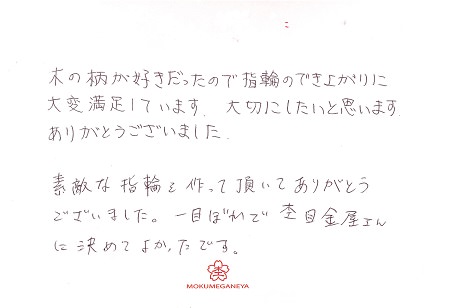 木の柄が好きだったので指輪のでき上がりに
大変満足しています. 大切にしたいと思います.
ありがとうございました.
素敵な指輪を作って頂いてありがとう
ございました。一目ぼれで 杢目金屋さん
に決めてよかったです。
MOKUMEGANEYA